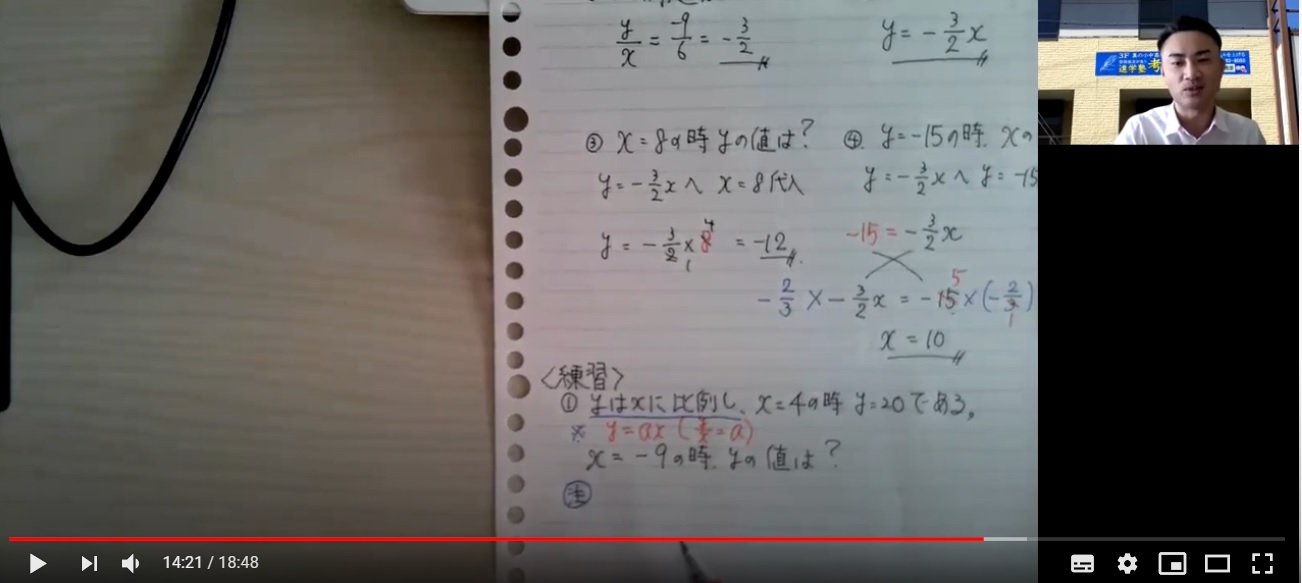 y/x = -9/6 = -3/2
y = -3/2 x
③ x=8の時 yの値は?
y=-3/2xへ x=8代入
y = -3/2 × 8 4 1 = -12
④ y=-15の時、xの
y=-3/2xへ y=-15
-15 = -3/2x
-2/3 × -3/2x = -15 5 × (-2/3) 1
x = 10
<練習>
① yはxに比例し、x=4の時 y=20である。
※ y=ax (y/x=a)
x=-9の時、yの値は?
14:21 / 18:48
3F
進学塾 考